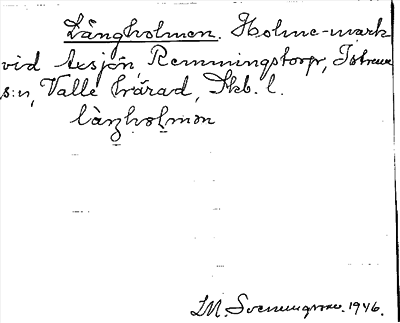 Långholmen. Holme-mark
vid Lesjön, Remmingstorp, Istrum
s:n, Valle härad, Skb. l.
làŋhoɭmən
I.M. Svenungsson. 1946.